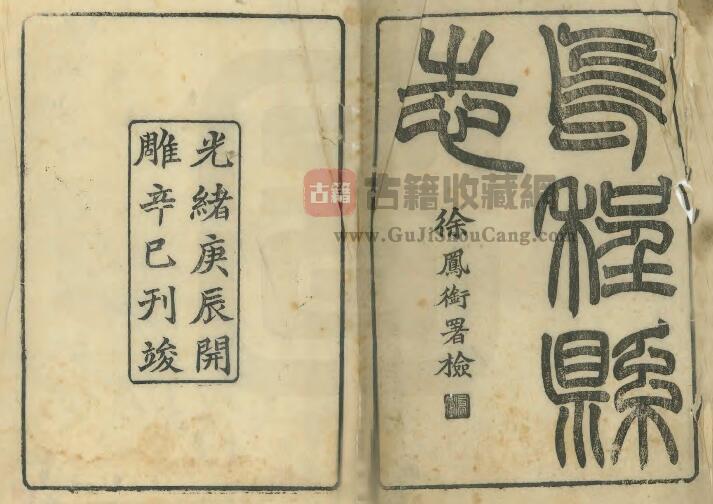 烏程縣
志
徐鳳銜署檢
光緒庚辰開
雕辛巳刊竣
古籍
古籍收藏網
www.GuJiShouCang.com